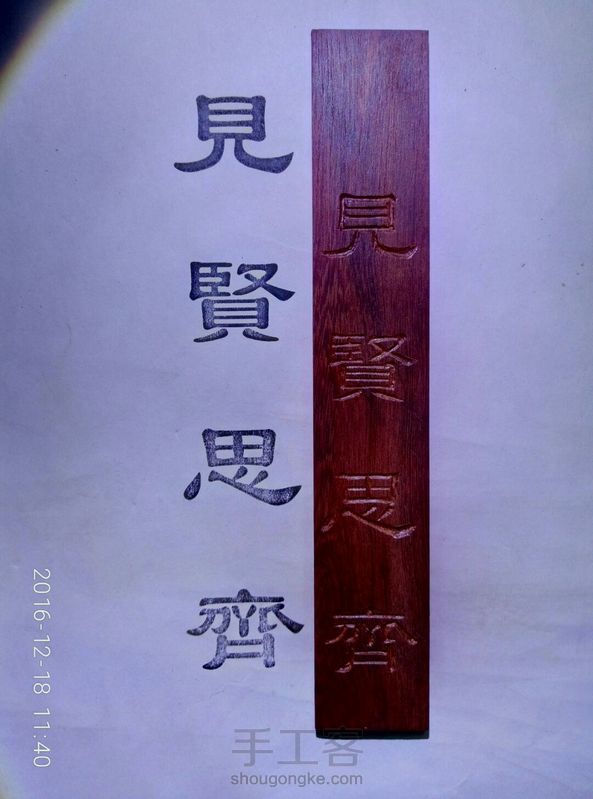 見賢思齊
見賢思齊
2016-12-18 11:40
手工客
shougongke.com